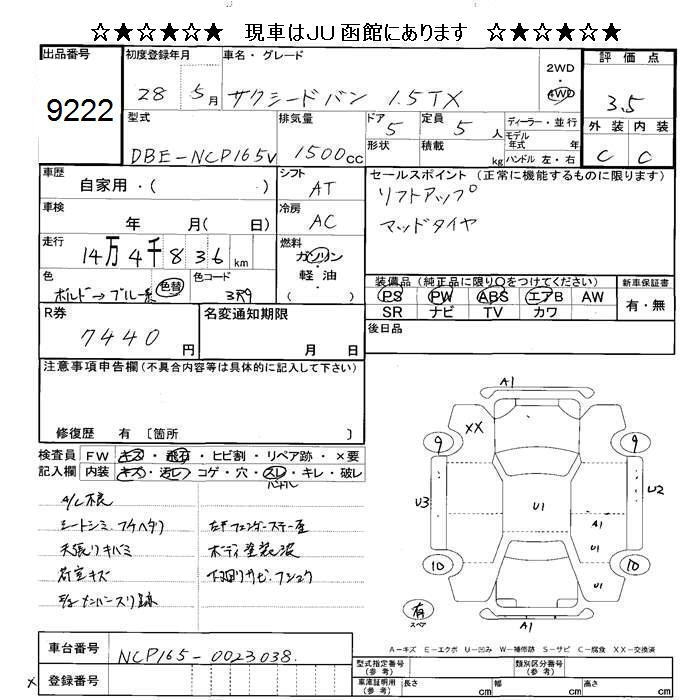 ☆★☆★☆★ 現車はJU函館にあります ☆★☆★☆★
出品番号 9222
初度登録年月 28 年 5月
車名・グレード サクシードバン 1.5TX
2WD・4WD
評価点 3.5
外装 C 内装 C
型式 DBE-NCP165V
排気量 1500cc
ドア 5 形状
定員 5人 積載 kg
ディーラー・並行
モデル年式 年
ハンドル 左・右
車歴 自家用・( )
シフト AT
セールスポイント (正常に機能するものに限ります)
リフトアップ
マッドタイヤ
車検 年 月( 日)
冷房 AC
走行 14万4千836km
燃料 ガソリン
軽油
( )
色 ボルドー→ブルー系 色替
色コード 3R9
装備品 (純正品に限り○をつけてください)
PS PW ABS エアB AW
SR ナビ TV カワ
新車保証書
有・無
R券 7440円
名変通知期限 月 日
後日品
注意事項申告欄(不具合内容等は具体的に記入して下さい)
修復歴 有 〔箇所 〕
検査員記入欄
FW キズ・飛石・ヒビ割・リペア跡・×要
内装 キズ・汚レ・コゲ・穴・スレ・キレ・破レ
ハンドル
A/L不良
シートシミ フケヘタリ
天張りキバミ
荷室キズ
ボディ塗装波
下回りサビ・フショク
A1
XX
9 9
U3 U1 U2
A1
U1
10 10
U1
有
スペア
A1
A-キズ E-エクボ U-凹み W-補修跡 S-サビ C-腐食 XX-交換済
車台番号 NCP165-0023038
× 登録番号
型式指定番号(参考) 類別区分番号(参考)
車庫証明用(参考) 長さ cm 幅 cm 高さ cm